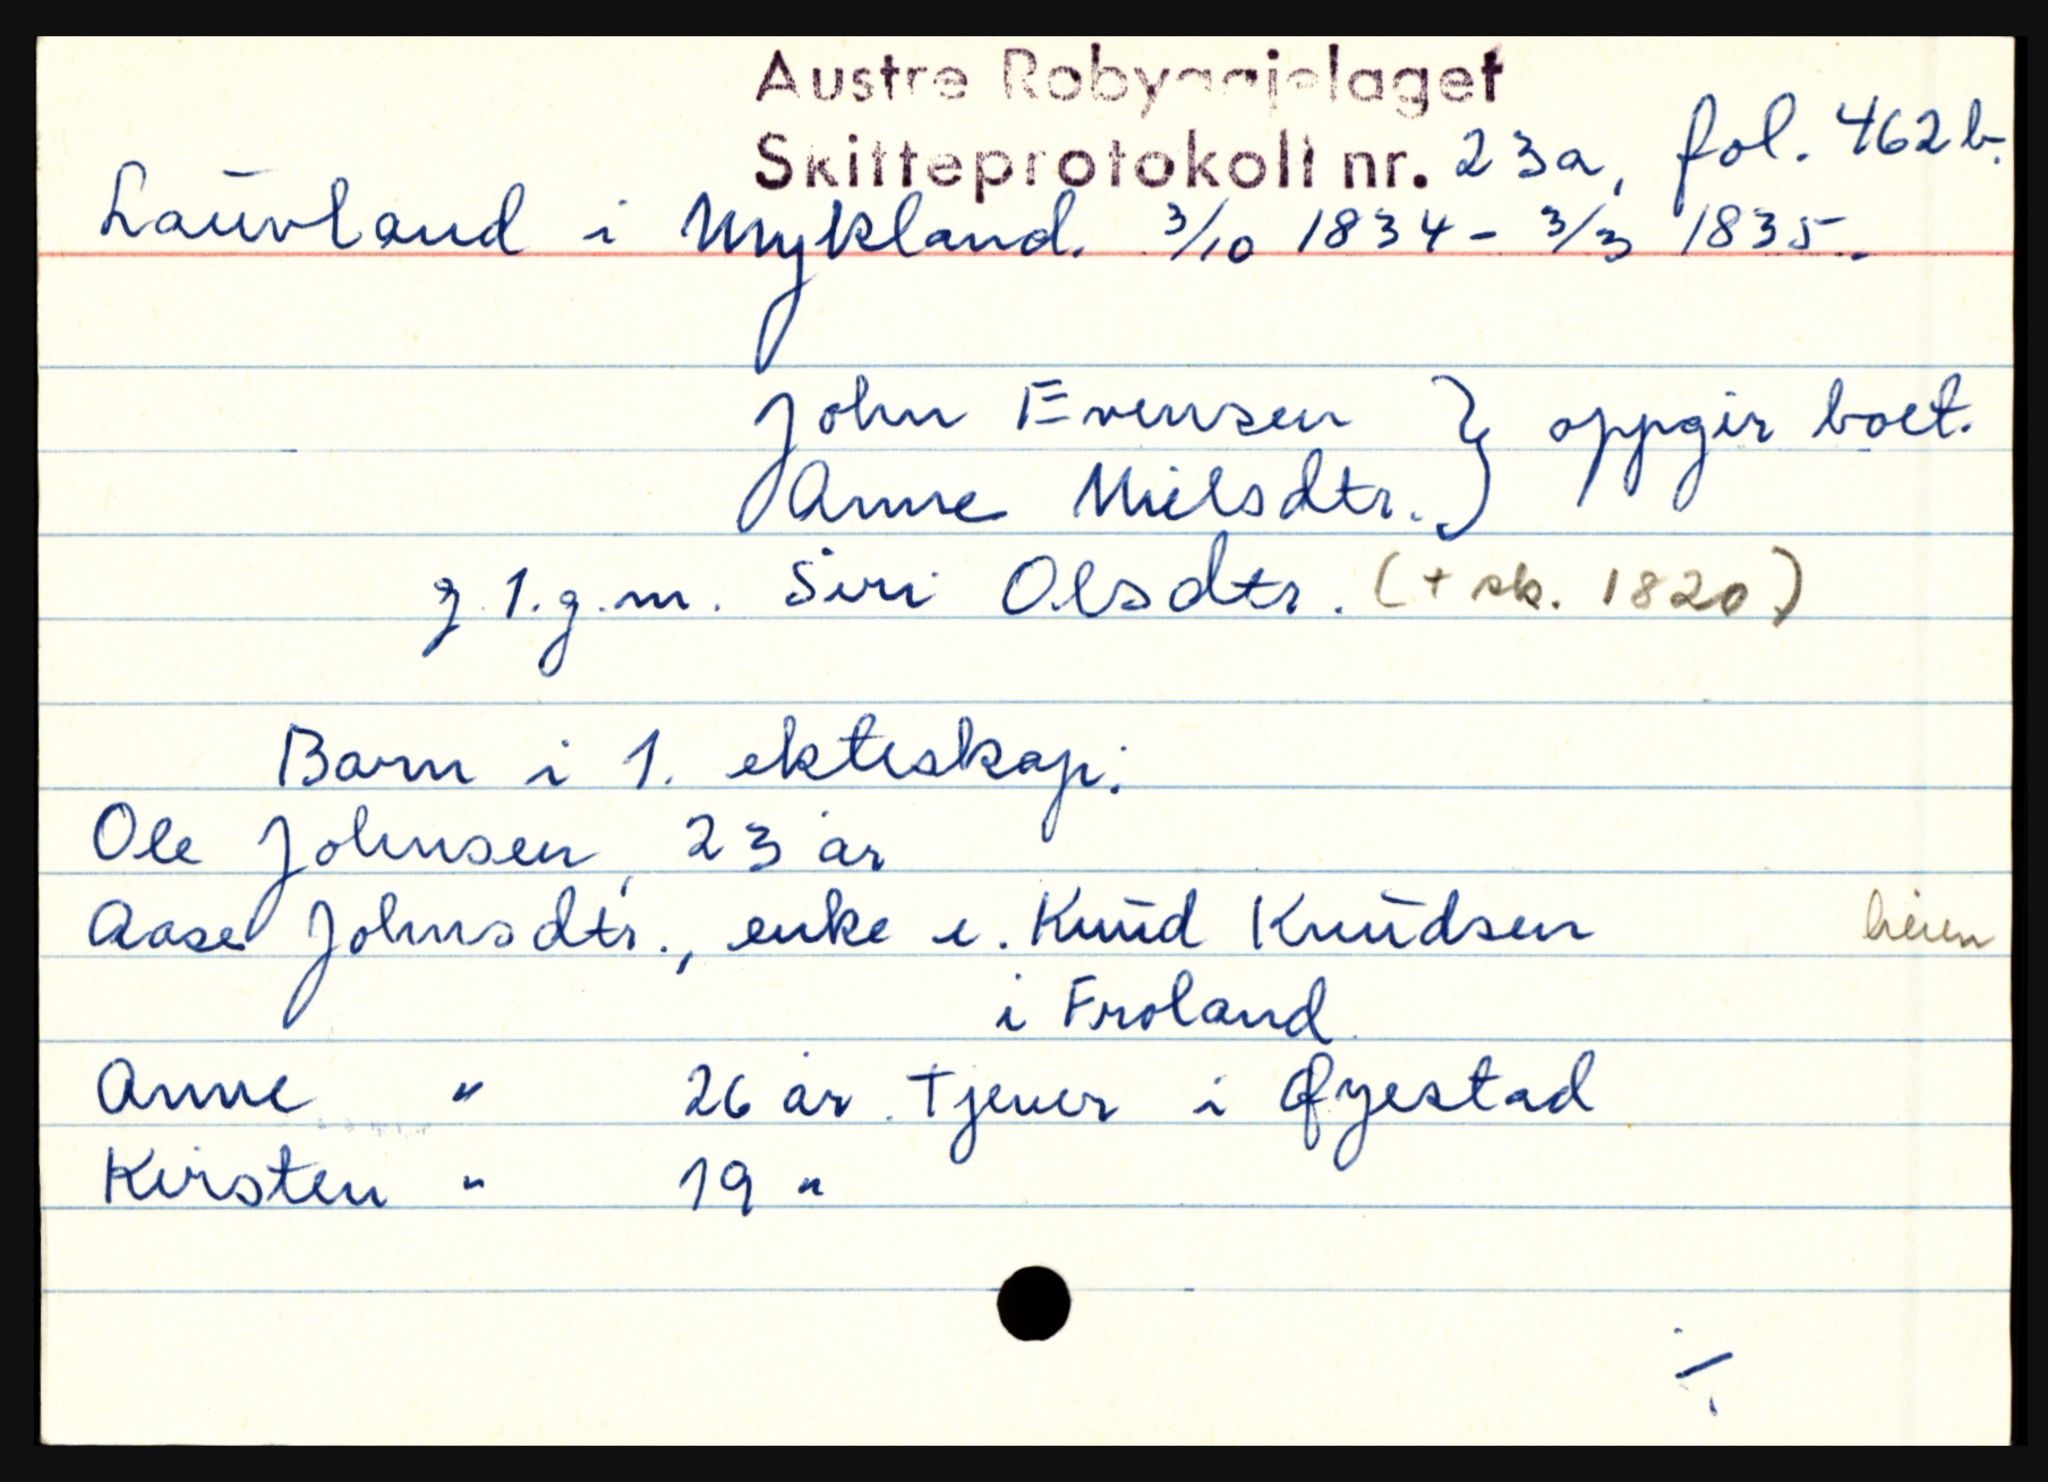 Austre Robyggjelaget
Skifteprotokoll nr. 23a, fol. 462b.
Lauvland i Mykland. 3/10 1834 - 3/3 1835.
John Evensen } oppgir boet.
Anne Nielsdtr. }
g. 1. g. m. Siri Olsdtr. (+ sk. 1820)
Barn i 1. ekteskap:
Ole Johnsen, 23 år
Aase Johnsdtr., enke e. Knud Knudsen heien
i Froland
Anne " 26 år. Tjener i Øyestad
Kirsten " 19 "
./.